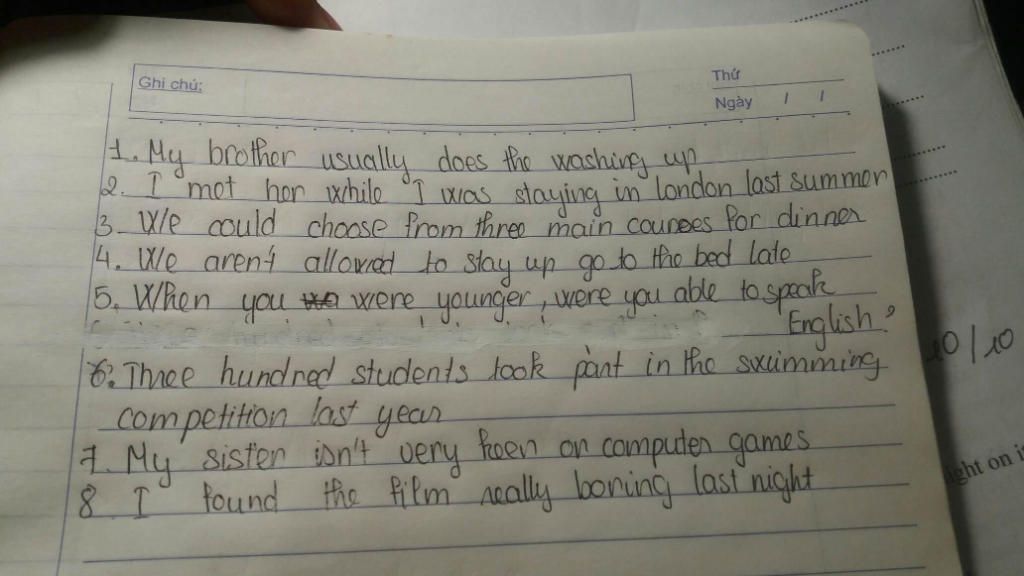 Ghi chú:
Thứ
Ngày / /
1. My brother usually does the washing up
2. I met her while I was staying in london last summer
3. We could choose from three main courses for dinner
4. We aren't allowed to stay up go to the bed late
5. When you were younger, were you able to speak
English?
6. Three hundred students took part in the swimming
competition last year
7. My sister isn't very keen on computer games
8 I found the film really boring last night
10/10
ight on i